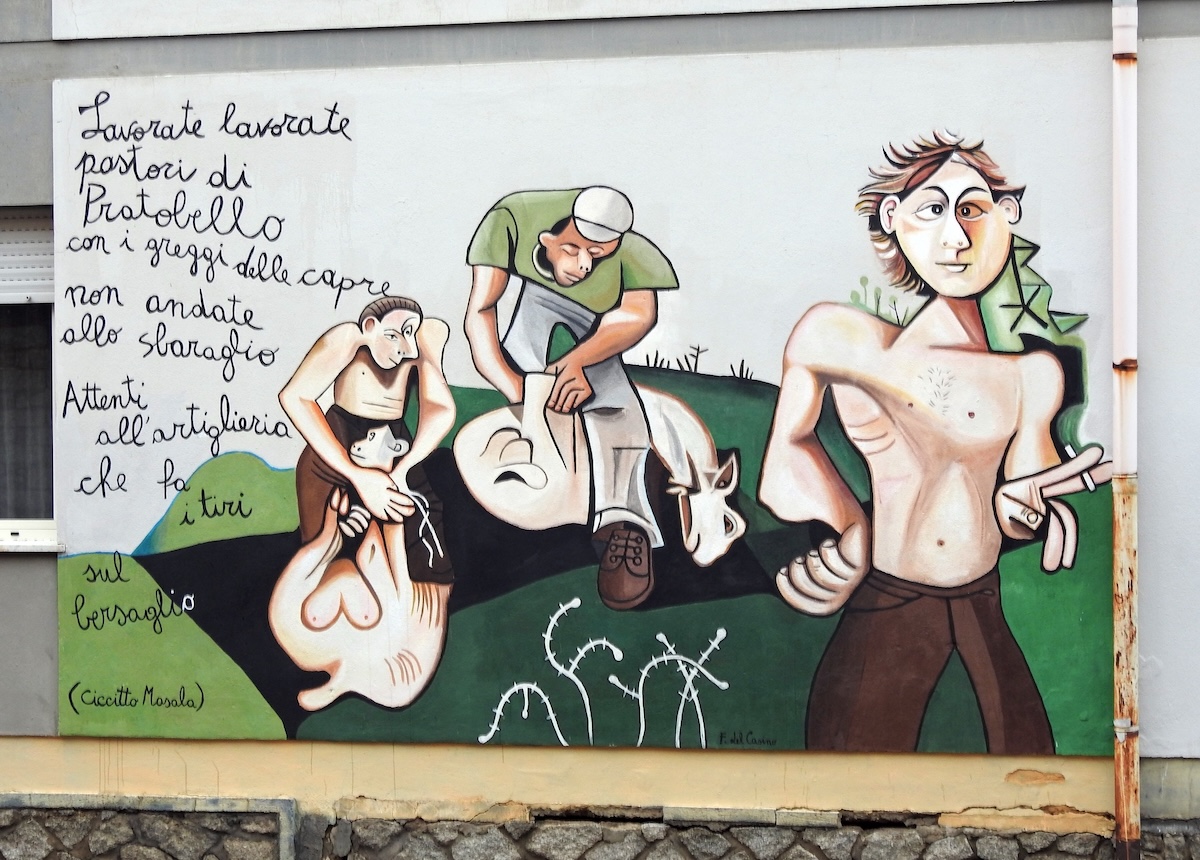 Lavorate lavorate
pastori di
Pratobello
con i greggi delle capre
non andate
allo sbaraglio
Attenti
all'artiglieria
che fa
i tiri
sul
bersaglio
(Ciccitto Masala)
F. del Casino